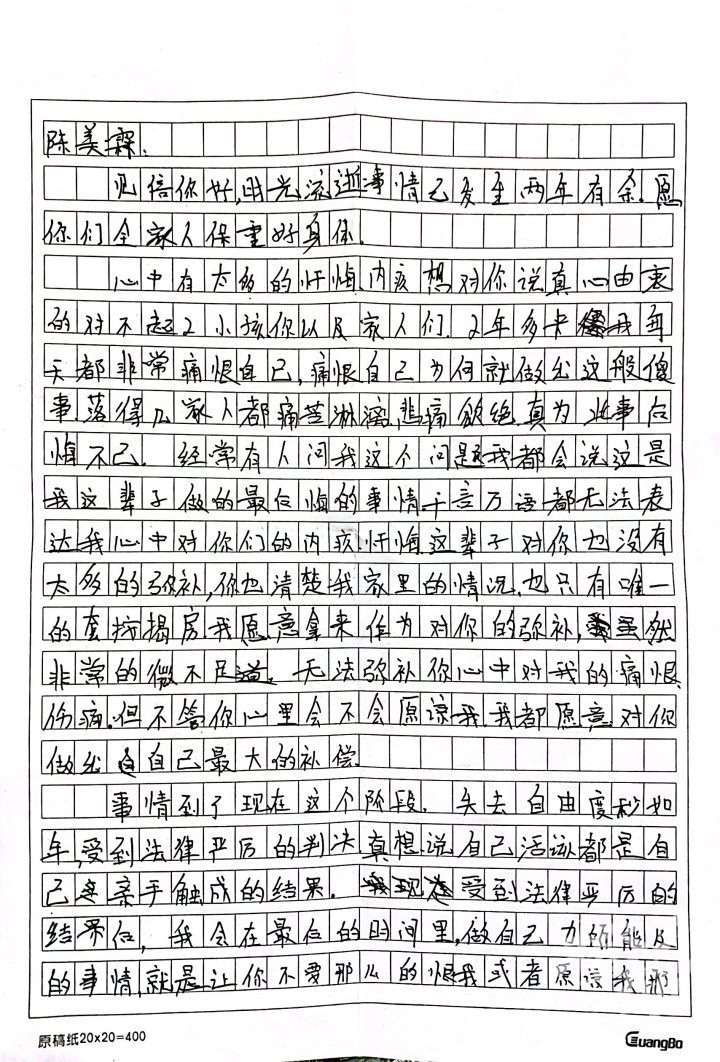 陈美霖:
见信你好,时光流逝事情已发生两年有余.愿
你们全家人保重好身体.
心中有太多的忏悔.内疚想对你说真心由衷
的对不起2小孩你以及家人们.2年多来我每
天都非常痛恨自已,痛恨自己为何就做出这般傻
事落得几家人都痛苦淋漓.悲痛欲绝真为此事后
悔不已. 经常有人问我这个问题我都会说这是
我这辈子做的最后悔的事情.千言万语都无法表
达我心中对你们的内疚.忏悔.这辈子对你也没有
太多的弥补,你也清楚我家里的情况.也只有唯一
的套按揭房.我愿意拿来作为对你的弥补,虽然
非常的微不足道. 无法弥补你心中对我的痛恨.
伤痛.但不管你心里会不会原谅我.我都愿意对你
做出自己最大的补偿.
事情到了现在这个阶段. 失去自由度秒如
年,受到法律严厉的判决真想说自己活该都是自
己亲手触成的结果. 受到法律严厉的
结果后, 我会在最后的时间里,做自己力所能及
的事情,就是让你不要那么的恨我或者原谅我那
原稿纸20×20=400
GuangBo